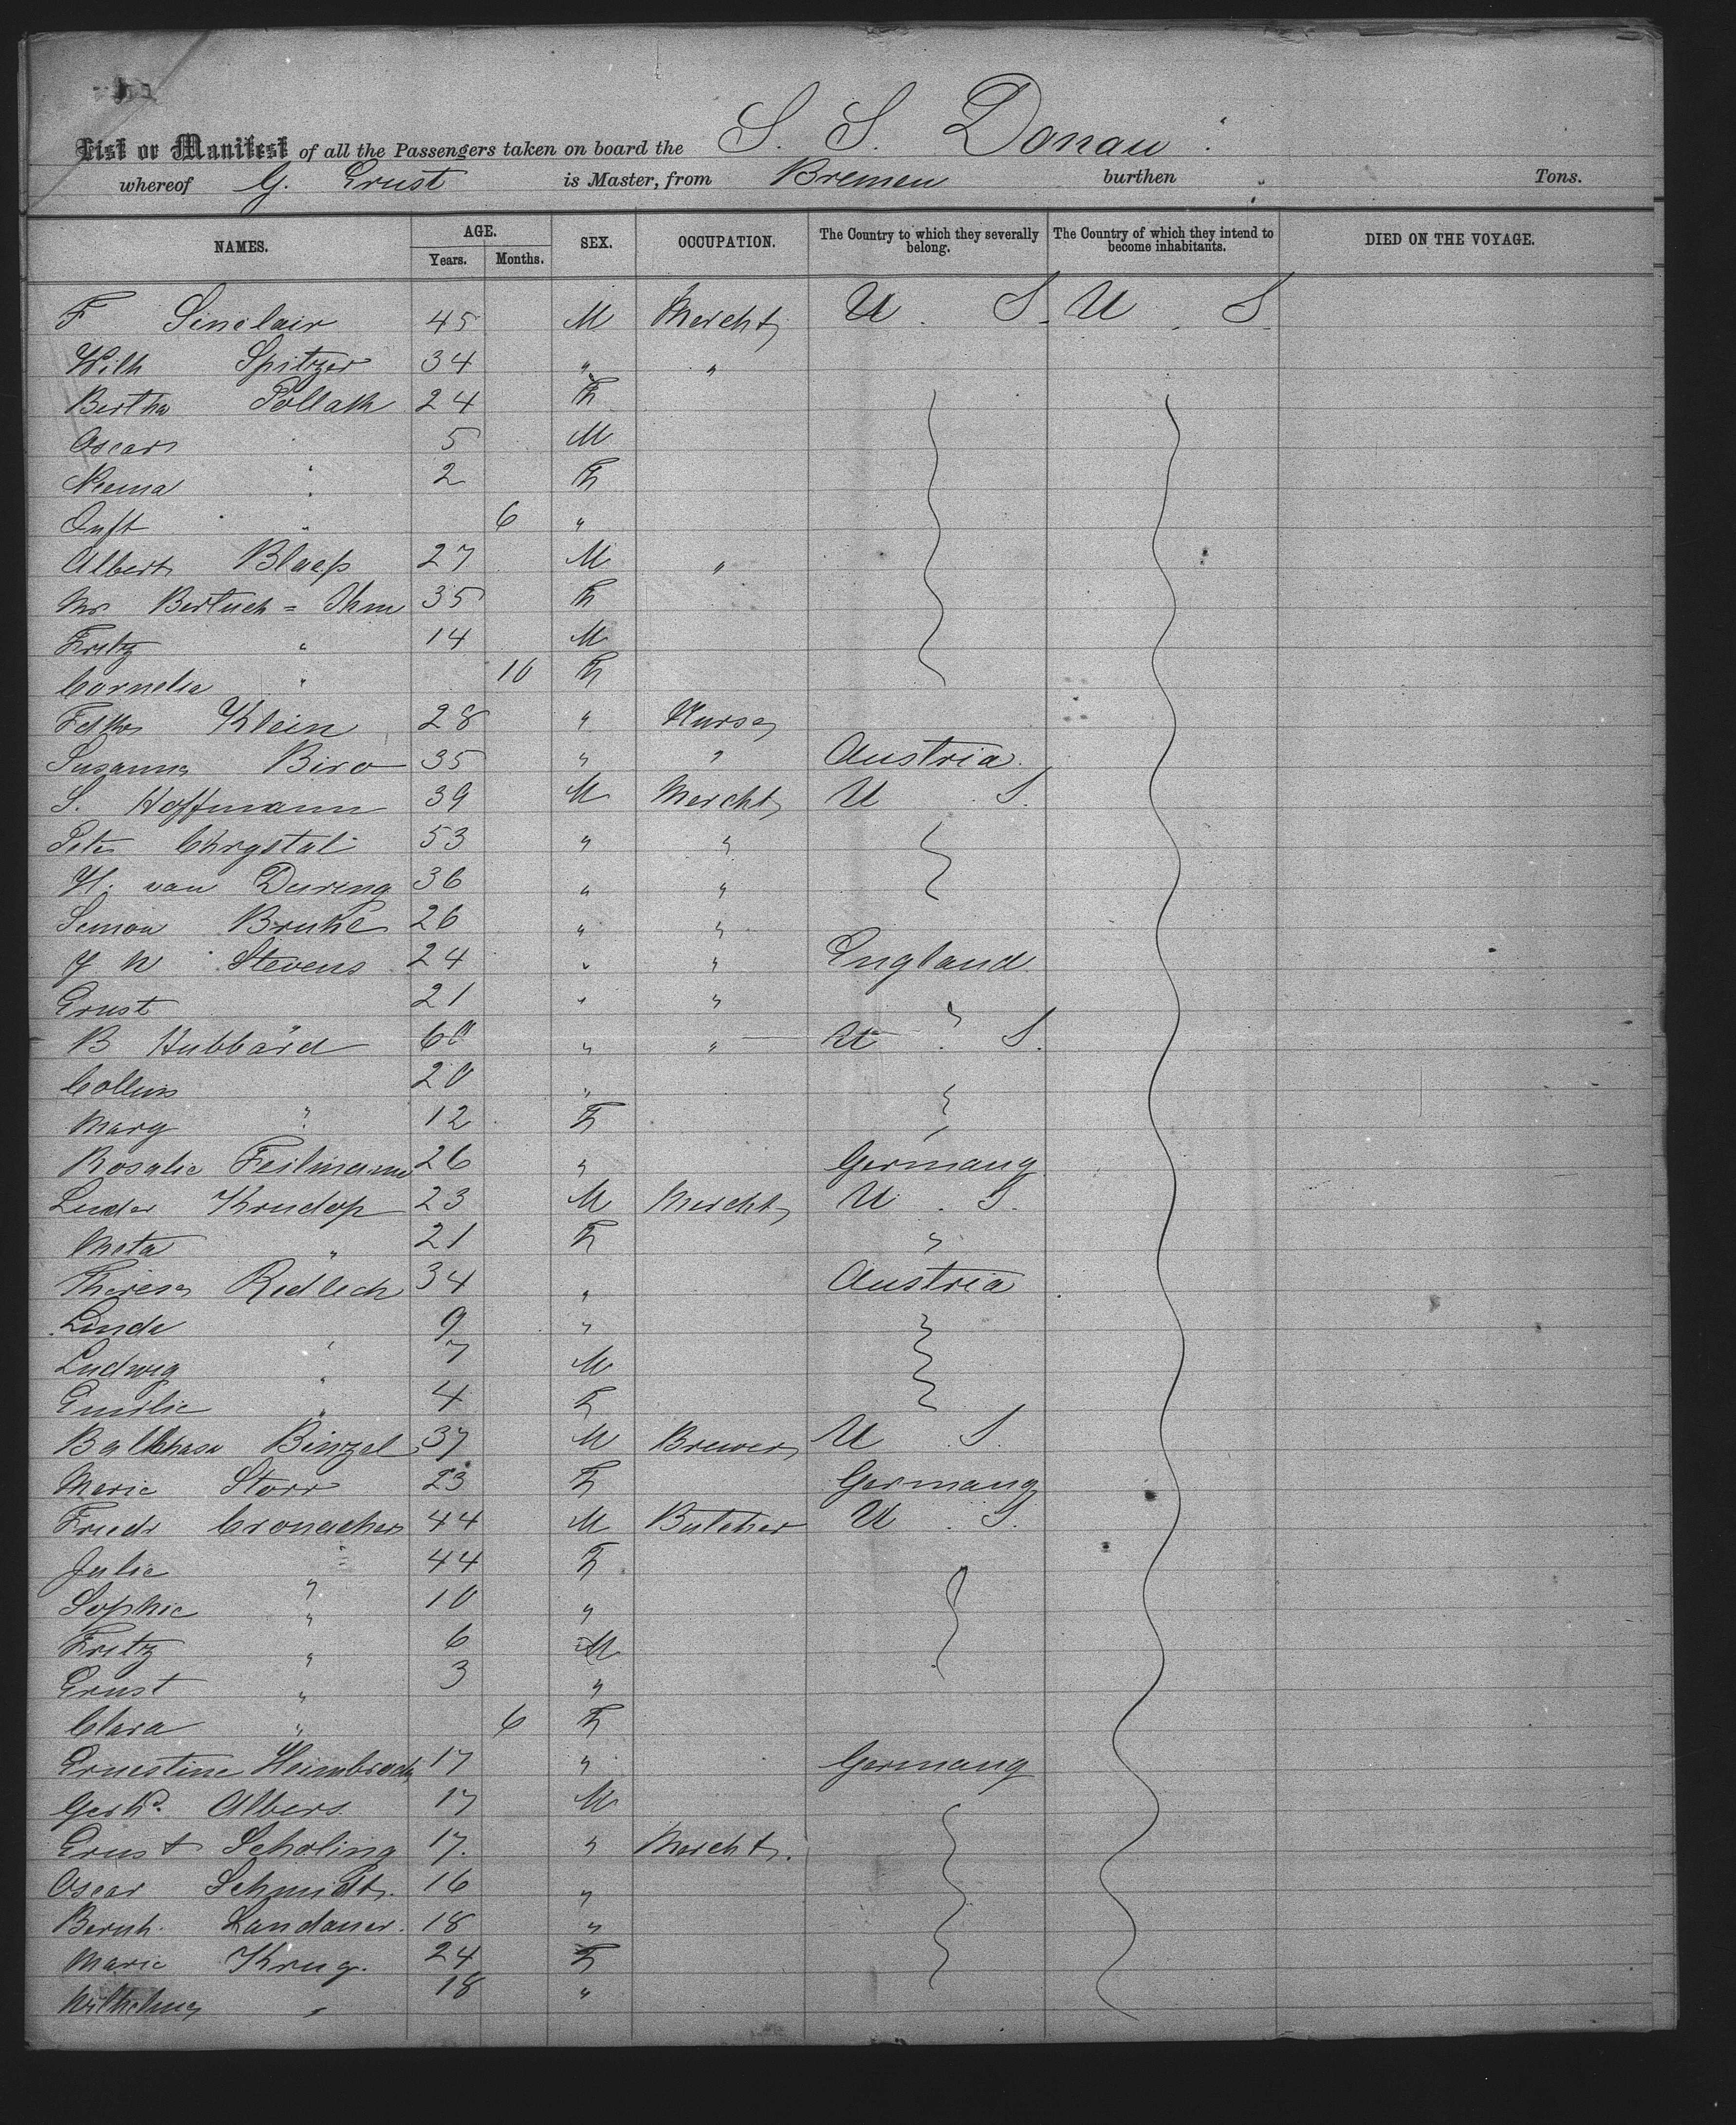 List or Manifest of all the Passengers taken on board the S. S. Donau
whereof G. Ernst is Master, from Bremen burthen Tons.
NAMES. AGE. Years. Months. SEX. OCCUPATION. The Country to which they severally belong. The Country of which they intend to become inhabitants. DIED ON THE VOYAGE.
F Sinclair 45 M Mercht U. S. U. S.
Wilh Spitzer 34 " "
Bertha Pollak 24 F
Oscar " 5 M
" 2 F
Inft " 6 "
Albert 27 M "
Mrs Bertuch = Ihm 35 F
Fritz " 14 M
Cornelia " 10 F
Klein 28 " Nurse
Susanna Biro 35 " " Austria
S. Hoffmann 39 M Mercht U. S.
Peter Chrystal 53 " "
H. van During 36 " "
Simon Bruhl 26 " "
J W Stevens 24 " " England
Ernst 21 " " "
B Hubbard 60 " " U. S.
Collins 20 " "
Mary " 12 F "
Rosalie Feilmann 26 " Germany
Luder Krudop 23 M Mercht U. S.
Meta " 21 F "
Theresa Redlich 34 " Austria
Linda " 9 "
Ludwig " 7 M
Emilie " 4 F
Balthasar Binzel 37 M Brewer U. S.
Marie Storr 23 F Germany
Friedr Cronacher 44 M Butcher U. S.
Julie " 44 F
Sophie " 10 "
Fritz " 6 M
Ernst " 3 "
Clara " 6 F
Ernestine Heimbrock 17 " Germany
Gerhd. Albers 17 M
Ernst Scholing 17. " Mercht.
Oscar Schmidt. 16 "
Bernh. Landauer. 18 "
Marie Krug. 24 F
Wilhelmg " 18 "